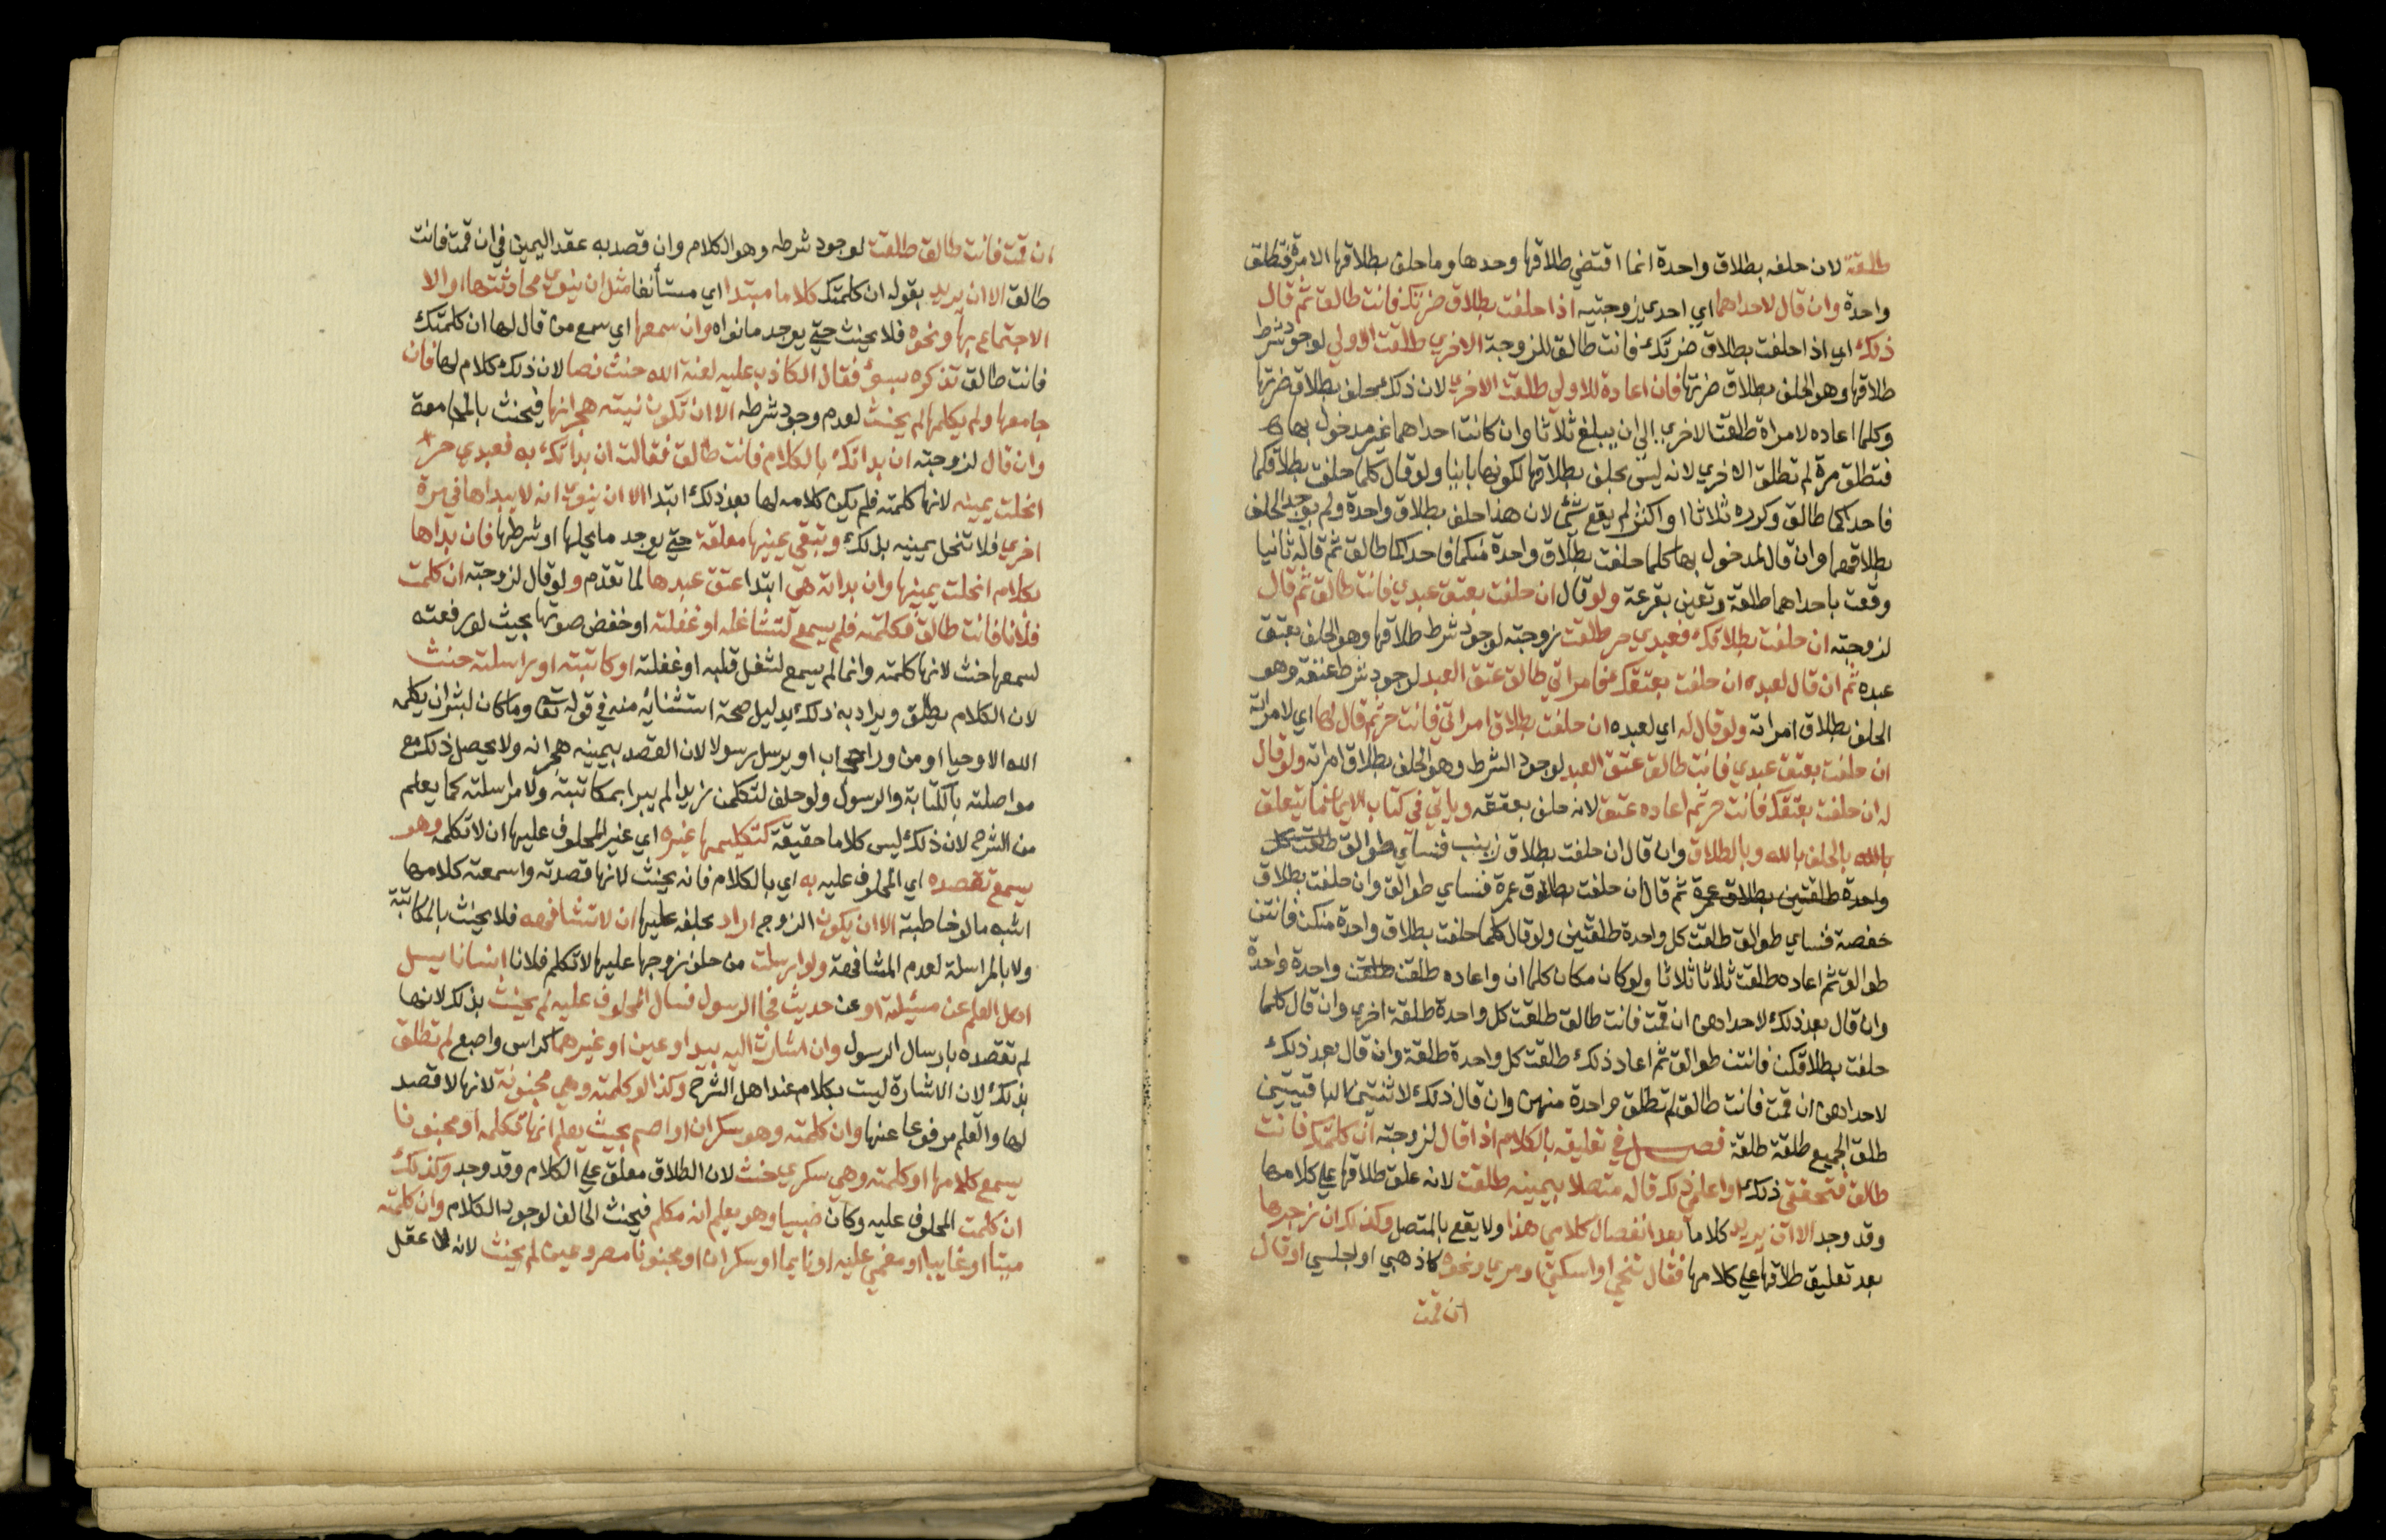 طلقة لان حلفه بطلاق واحدة انما اقتضي طلاقها وحدها وما حلف بطلاقها الا مرة فتطلق
واحدة وان قال لاحداهما اي احدي زوجتيه اذا حلفت بطلاق ضرتك فانت طالق ثم قال
ذلك اي اذا حلفت بطلاق ضرتك فانت طالق للزوجة الاخري طلقت الاولي لوجود شرط
طلاقها وهو الحلف بطلاق ضرتها فان اعاده للاولي طلقت الاخري لان ذلك حلف بطلاق ضرتها
وكلما اعاده لامراة طلقت الاخري الي ان يبلغ ثلاثا وان كانت احداهما غير مدخول بها
فتطلق مرة لم تطلق الاخري لانه ليس بحلف بطلاقها لكونها باينا ولو قال كلما حلفت بطلاقكما
فاحداكما طالق وكرره ثلاثا او اكثر لم يقع شئ لان هذا حلف بطلاق واحدة ولم يوجد الحلف
بطلاقهما وان قال لمدخول بهما كلما حلفت بطلاق واحدة منكما فاحداكما طالق ثم قاله ثانيا
وقعت باحداهما طلقة وتعين بقرعة ولو قال ان حلفت بعتق عبدي فانت طالق ثم قال
لزوجته ان حلفت بطلاقك فعبدي حر طلقت زوجته لوجود شرط طلاقها وهو الحلف بعتق
عبده ثم ان قال لعبده ان حلفت بعتقك فامراتي طالق عتق العبد لوجود شرط عتقه وهو
الحلف بطلاق امراته ولو قال له اي لعبده ان حلفت بطلاق امراتي فانت حر ثم قال لها اي لامراته
ان حلفت بعتق عبدي فانت طالق عتق العبد لوجود الشرط وهو الحلف بطلاق امراته ولو قال
له ان حلفت بعتقك فانت حر ثم اعاده عتق لانه حلف بعتقه وياتي في كتاب الايمان ما يتعلق
بالله بالحلف بالله وبالطلاق وان قال ان حلفت بطلاق زينب فنساي طوالق طلقت كل
واحدة طلقتين بطلاق عمرة ثم قال ان حلفت بطلاق عمرة فنساي طوالق وان حلفت بطلاق
حفصة فنساي طوالق طلقت كل واحدة طلقتين ولو قال كلما حلفت بطلاق واحدة منكن فانتن
طوالق ثم اعاده طلقت ثلاثا ثلاثا ولو كان مكان كلما ان واعاده طلقن طلقن واحدة واحدة
وان قال بعد ذلك لاحداهن ان قمت فانت طالق طلقت كل واحدة طلقة اخري وان قال كلما
حلفت بطلاقكن فانتن طوالق ثم اعاد ذلك طلقت كل واحدة طلقة وان قال بعد ذلك
لاحداهن ان قمت فانت طالق لم تطلق واحدة منهن وان قال ذلك لاثنتين الباقيتين
طلق الجميع طلقة طلقة فصل في تعليقه بالكلام اذا قال لزوجته ان كلمتك فانت
طالق فتحققي ذلك او اعلمي ذلك قاله متصلا بيمينه طلقت لانه علق طلاقها علي كلامها
وقد وجد الا ان يريد كلاما بعد انفصال كلامي هذا ولا يقع بالمتصل وكذلك ان زجرها
بعد تعليق طلاقها علي كلامها فقال تنحي او اسكتي او مري ونحوه كاذهبي او اجلسي او قال
ان قمت
ان قمت فانت طالق طلقت لوجود شرطه وهو الكلام وان قصد به عقد اليمين في ان قمت فانت
طالق الا ان يريد بقوله ان كلمتك كلاما مبتدا اي مستأنفا مثل ان ينوي محادثتها او الا
الاجتماع بها ونحوه فلا يحنث حتي يوجد ما نواه وان سمعها اي سمع من قال لها ان كلمتك
فانت طالق تذكره بسوء فقال الكاذب عليه لعنة الله حنث نصا لان ذلك كلام لها فان
جامعها ولم يكلمها لم يحنث لعدم وجود شرطه الا ان تكون نيته هجرانها فيحنث بالمجامعة
وان قال لزوجته ان بداتك بالكلام فانت طالق فقالت ان بداتك به فعبدي حر
انحلت يمينه لانها كلمته فلم يكن كلامه لها بعد ذلك ابتدا الا ان ينوي انه لا يبداها في مرة
اخري فلا تنحل يمينه بذلك وتبقي يمينها معلقة حتي يوجد ما يحلها او شرطها فان بداها
بكلام انحلت يمينها وان بداته هي ابتدا عتق عبدها لما تقدم ولو قال لزوجته ان كلمت
فلانا فانت طالق فكلمته فلم يسمع لتشاغله او غفلته او خفض صوتها بحيث لو رفعته
لسمعها حنث لانها كلمته وانما لم يسمع لشغل قلبه او غفلته او كاتبته او راسلته حنث
لان الكلام يطلق ويراد به ذلك بدليل صحة استثنائه منه في قوله تعا وما كان لبشر ان يكلمه
الله الا وحيا او من وراي حجاب او يرسل رسولا لان القصد بيمينه هجرانه ولا يحصل ذلك مع
مواصلته بالكتابة والرسول ولو حلف لتكلمن زيدا لم يبرا بمكاتبته ولا مراسلته كما يعلم
من الشرح لان ذلك ليس كلاما حقيقة كتكليمها غيره اي غير المحلوف عليها ان لا تكلمه وهو
يسمع تقصده اي المحلوف عليه به اي بالكلام فانه يحنث لانها قصدته واسمعته كلامها
اشبه ما لو خاطبته الا ان يكون الزوج اراد بحلفه عليها ان لا تشافهه فلا يحنث بالمكاتبة
ولا بالمراسلة لعدم المشافهة ولو ارسلت من حلف زوجها عليها لا تكلم فلانا انسانا يسل
اهل العلم عن مسئلة او عن حديث فجا الرسول فسال المحلوف عليه لم يحنث بذلك لانها
لم تقصده بارسال الرسول وان اشارت اليه بيد او عين او غيرهما كراس واصبع لم تطلق
بذلك لان الاشارة ليست بكلام عند اهل الشرع وكذا لو كلمته وهي مجنونة لانها لا قصد
لها والقلم مرفوعا عنها وان كلمته وهو سكران او اصم بحيث يعلم انها تكلمه او مجنونا
يسمع كلامها او كلمته وهي سكري حنث لان الطلاق معلق علي الكلام وقد وجد وكذلك
ان كلمت المحلوف عليه وكان صبيا وهو يعلم انه مكلم فيحنث الحالف لوجود الكلام وان كلمته
ميتا او غايبا او مغمي عليه او نايما او سكران او مجنونا مصروعين لم يحنث لانه لا عقل